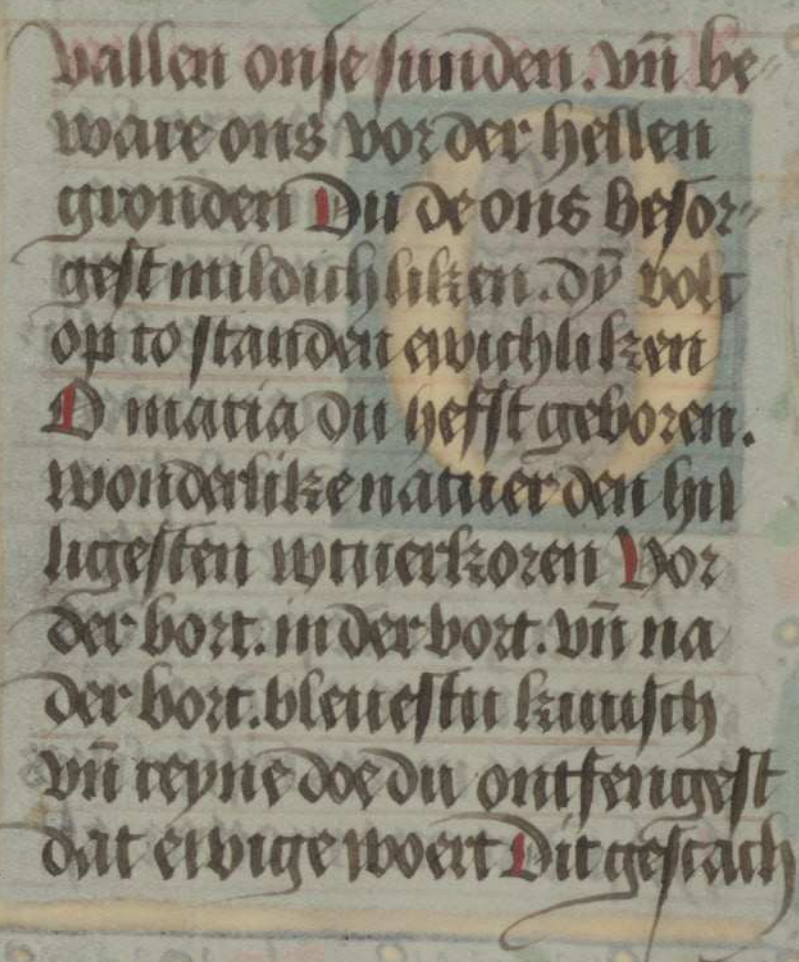 vallen onse sunden. vn̄ be-
ware ons vor der hellen
gronden Du de ons besor-
gest mildichliken. dÿ volc
op to standen ewichliken
O maria du hefst geboren.
wonderlike natuer den hil
ligesten wtuerkoren Vor
der bort. in der bort. vn̄ na
der bort. bleuestu kuusch
vn̄ reyne doe du ontfengest
dat ewige woert Dit gescach